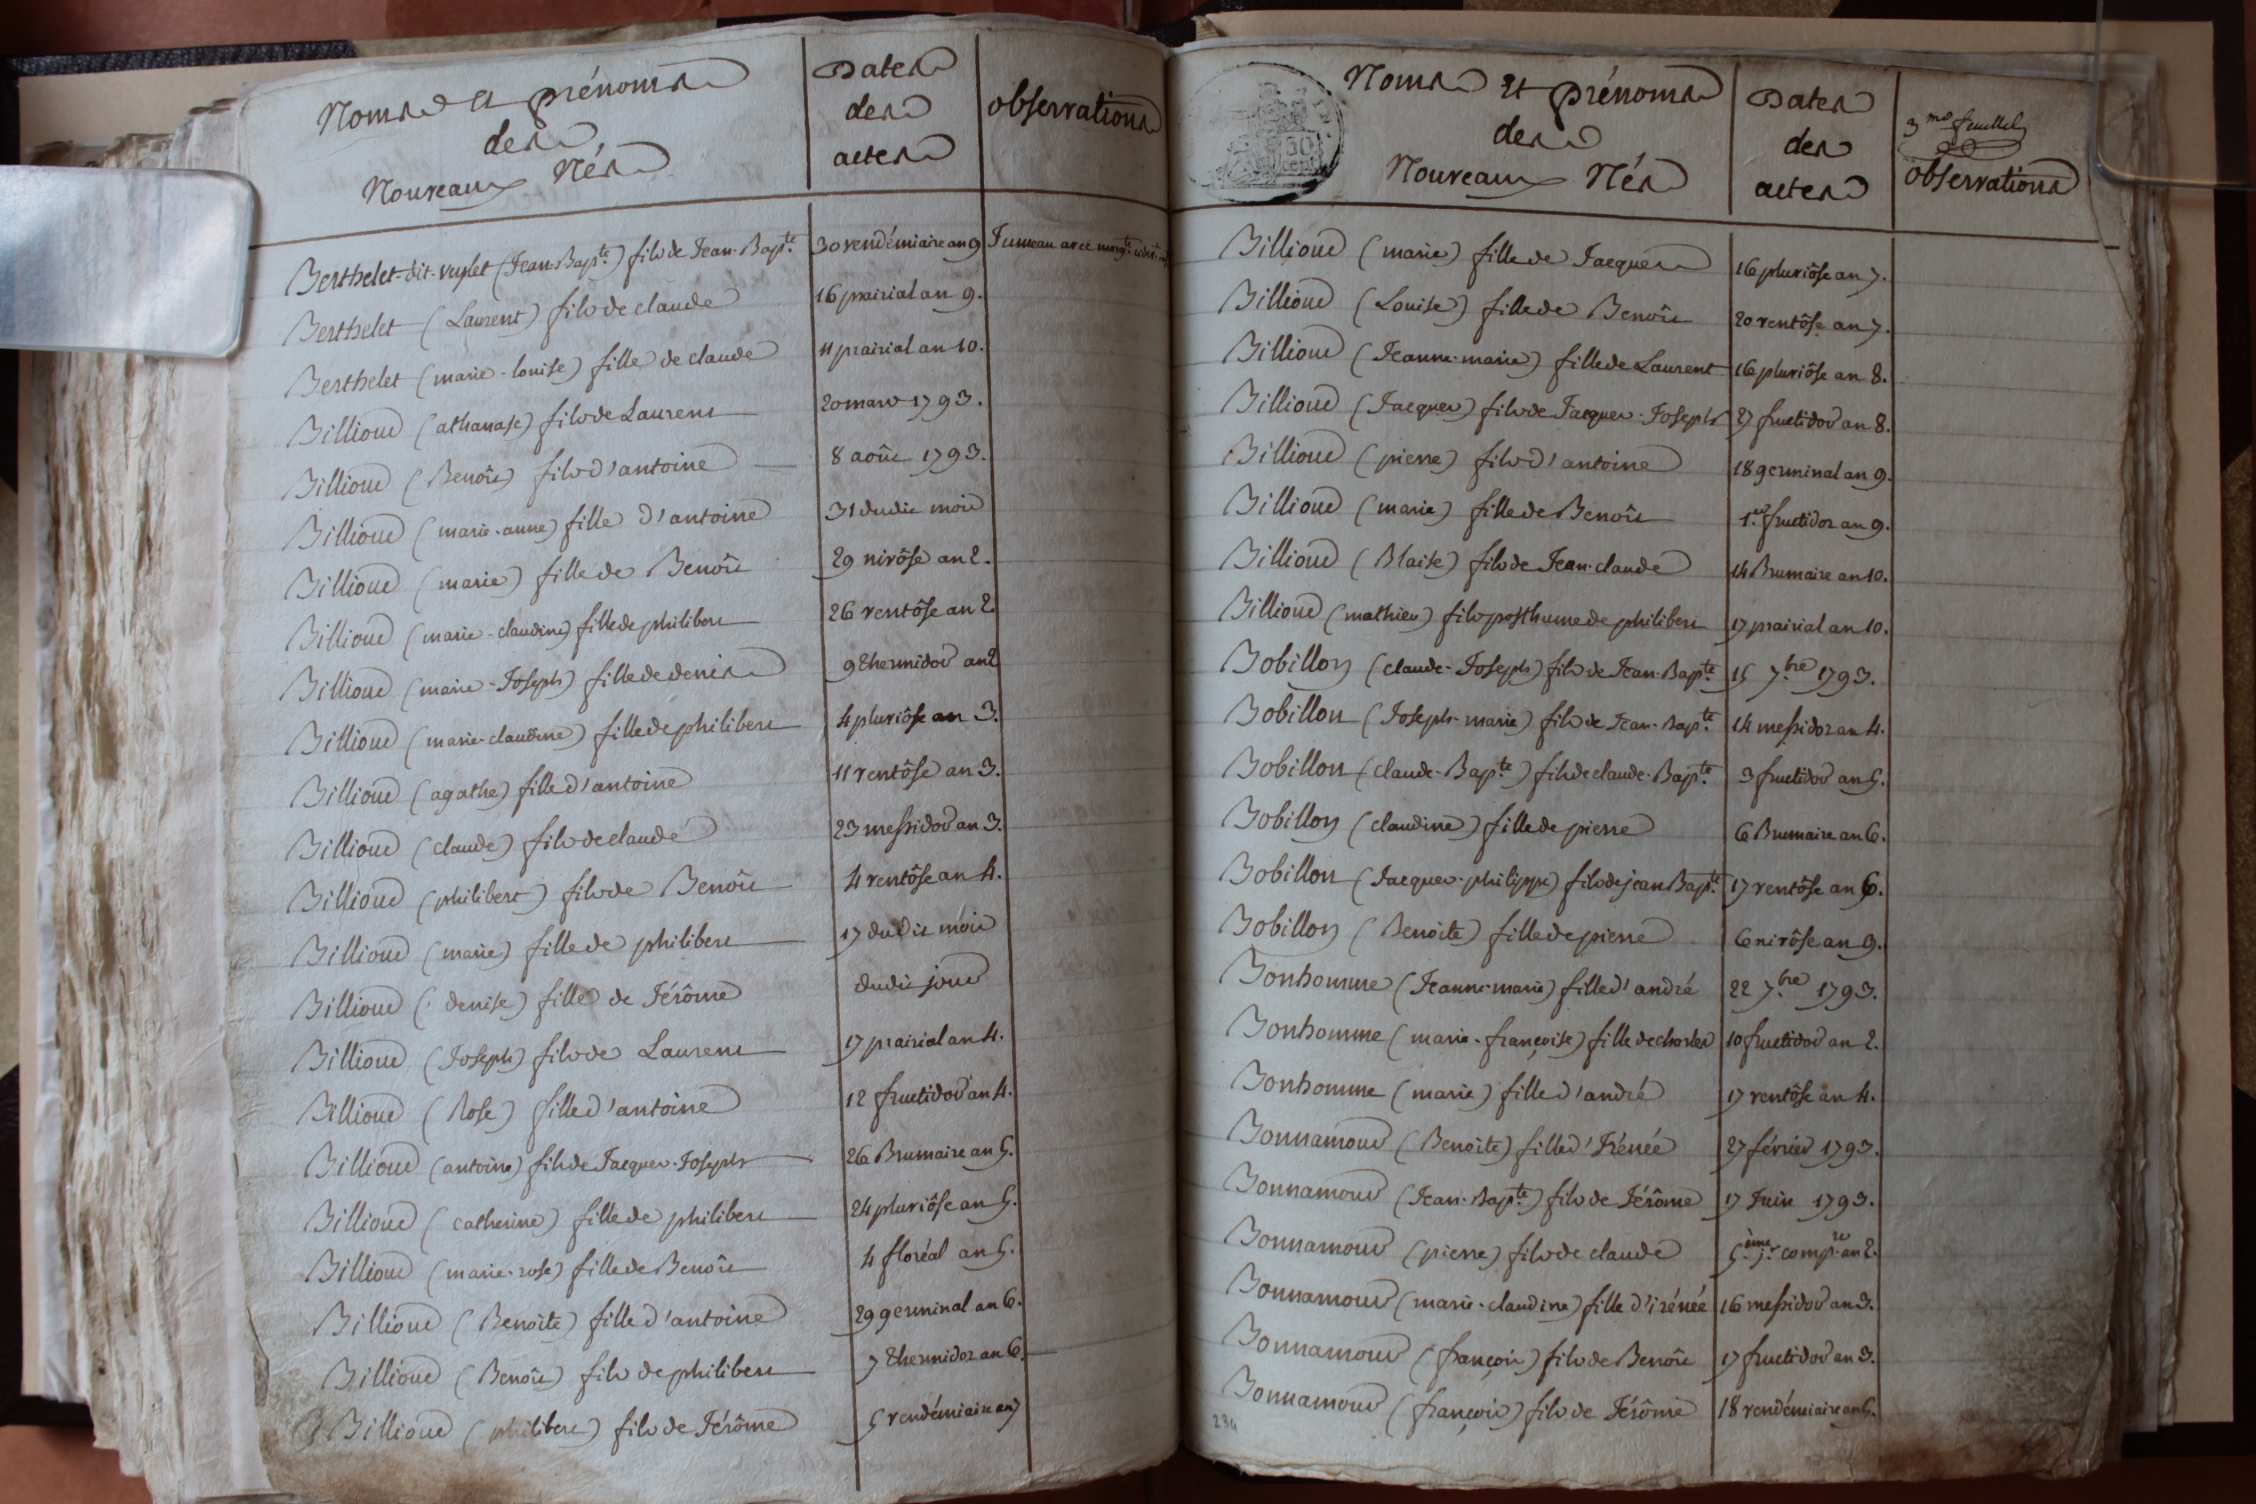 Noms et prénoms
des
Nouveaux Nés
Dates
des
actes
observations
Berthelet-dit-vuplet (Jean-Bapte.) fils de Jean-Bapte. 30 vendémiaire an 9 Jumeau avec
Berthelet (Laurent) fils de claude 16 prairial an 9.
Berthelet (marie-louise) fille de claude 11 prairial an 10.
Billioud (athanase) fils de Laurent 20 mars 1793.
Billioud (Benoît) fils d'antoine 8 août 1793.
Billioud (marie-anne) fille d'antoine 31 dudit mois
Billioud (marie) fille de Benoît 29 nivôse an 2.
Billioud (marie-claudine) fille de philibert 26 ventôse an 2
Billioud (marie-Joseph) fille de denis 9 thermidor an 2
Billioud (marie-claudine) fille de philibert 4 pluviôse an 3.
Billioud (agathe) fille d'antoine 11 ventôse an 3.
Billioud (claude) fils de claude 23 messidor an 3.
Billioud (philibert) fils de Benoît 4 ventôse an 4.
Billioud (marie) fille de philibert 17 dudit mois
Billioud (denise) fille de Jérôme dudit jour
Billioud (Joseph) fils de Laurent 17 prairial an 4.
Billioud (Rose) fille d'antoine 12 fructidor an 4.
Billioud (antoine) fils de Jacques-Joseph 26 Brumaire an 5.
Billioud (catherine) fille de philibert 24 pluviôse an 5.
Billioud (marie-rose) fille de Benoît 4 floréal an 5.
Billioud (Benoite) fille d'antoine 29 germinal an 6.
Billioud (Benoît) fils de philibert 7 thermidor an 6.
Billioud (philibert) fils de Jérôme 5 vendémiaire an 7
Noms et prénoms
des
Nouveaux Nés
Dates
des
actes
3me feuillet
observations
Billioud (marie) fille de Jacques 16 pluviôse an 7.
Billioud (Louise) fille de Benoît 20 ventôse an 7.
Billioud (Jeanne-marie) fille de Laurent 16 pluviôse an 8.
Billioud (Jacques) fils de Jacques-Joseph 27 fructidor an 8.
Billioud (pierre) fils d'antoine 18 germinal an 9.
Billioud (marie) fille de Benoît 1er. fructidor an 9.
Billioud (Blaise) fils de Jean-claude 14 Brumaire an 10.
Billioud (mathieu) fils posthume de philibert 17 prairial an 10.
Bobillon (claude-Joseph) fils de Jean-Bapte. 15 7bre 1793.
Bobillon (Joseph-marie) fils de Jean-Bapte. 14 messidor an 4.
Bobillon (claude-Bapte.) fils de claude-Bapte. 3 fructidor an 5.
Bobillon (claudine) fille de pierre 6 Brumaire an 6.
Bobillon (Jacques-philippe) fils de jean Bapte. 17 ventôse an 6.
Bobillon (Benoite) fille de pierre 6 nivôse an 9.
Bonhomme (Jeanne-marie) fille d'andré 22 7bre 1793.
Bonhomme (marie-françoise) fille de charles 10 fructidor an 2.
Bonhomme (marie) fille d'andré 17 ventôse an 4.
Bonnamour (Benoite) fille d'Irénée 27 février 1793.
Bonnamour (Jean-Bapte.) fils de Jérôme 17 Juin 1793.
Bonnamour (pierre) fils de claude 5ème jr. compre. an 2.
Bonnamour (marie-claudine) fille d'irénée 16 messidor an 3.
Bonnamour (françois) fils de Benoît 17 fructidor an 3.
Bonnamour (françois) fils de Jérôme 18 vendémiaire an 5.
234